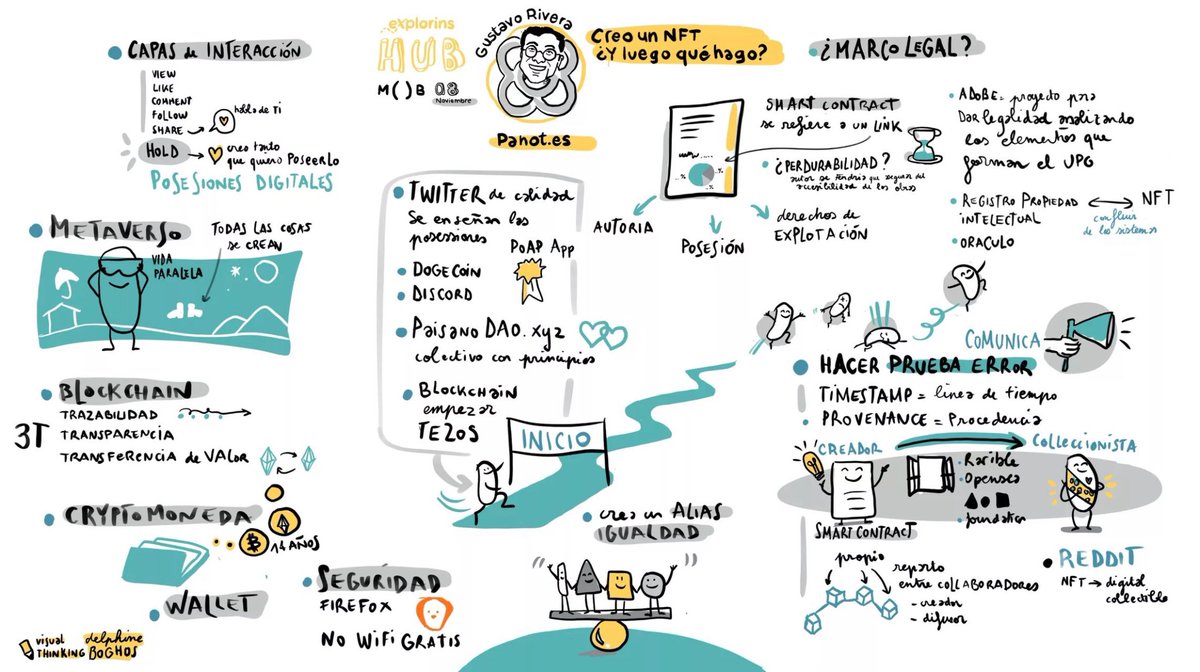 explorins
HUB
M( )B 08
Noviembre
Gustavo Rivera
Panot.es
Creo un NFT
¿Y luego qué hago?
CAPAS de INTERACCIÓN
VIEW
LIKE
COMMENT
FOLLOW
SHARE
habla de Ti
HOLD
creo tanto
que quiero POSEERLO
POSESIONES DIGITALES
METAVERSO
VIDA
PARALELA
TODAS LAS COSAS
SE CREAN
BLOCKCHAIN
3T
TRAZABILIDAD
TRANSPARENCIA
TRANSFERENCIA de VALOR
CRYPTOMONEDA
14 AÑOS
WALLET
SEGURIDAD
FIREFOX
NO WIFI GRATIS
visual
THINKING
delphine
BOGHOS
TWITTER de calidad
Se enseñan las
posesiones
POAP App
DOGECOIN
DISCORD
Paisano DAO.xyz
colectivo con principios
BLOCKCHAIN
empezar
TEZOS
INICIO
crea un ALIAS
IGUALDAD
¿MARCO LEGAL?
SMART CONTRACT
se refiere a un LINK
www.....
¿PERDURABILIDAD?
autor se tendría que asegurar de
accesibilidad de las obras
AUTORIA
POSESIÓN
derechos de
EXPLOTACIÓN
ADOBE = proyecto para
Dar legalidad analizando
los elementos que
forman el JPG
REGISTRO PROPIEDAD
INTELECTUAL
NFT
confluir
de los sistemas
ORACULO
COMUNICA
HACER PRUEBA ERROR
TIMESTAMP = línea de tiempo
PROVENANCE = Procedencia
CREADOR
COLLECCIONISTA
Rarible
Opensea
foundation
SMART CONTRACT
propio
reparto
entre COLLABORADORES
- creador
- difusor
REDDIT
NFT → digital
collectible